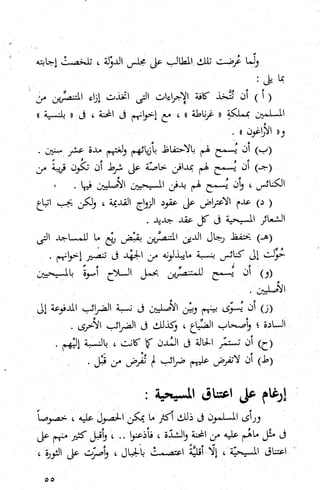 ولما عُرضت تلك المطالب على مجلس الدولة ، تلخصت إجابته
بما يلى :
( أ ) أن تُتَّخذ كافة الإجراءات التى اتخذت إزاء المتنصرين من
المسلمين بمملكة « غرناطة » ، مع إخوانهم فى المحنة ، فى « بلنسية »
و « الأراغون » .
(ب) أن يُسمح لهم بالاحتفاظ بأزيائهم ولغتهم مدة عشر سنين .
(جـ) أن يُسمح لهم بمدافن خاصّة على شرط أن تكون قريبةً من
الكنائس ، وأن يُسمح لهم بدفن المسيحيين الأصليين فيها .
( د ) عدم الاعتراض على عقود الزواج القديمة ، ولكن يجب اتباع
الشعائر المسيحية فى كل عقد جديد .
(هـ) يحتفظ رجال الدين المتنصّرين بقبْض ريع ما للمساجد التى
حوّلت إلى كنائس بنسبة مايبذلونه من الجهد فى تنصير إخوانهم .
(و) أن يُسمح للمتنصرين بحمل السلاح أسوةً بالمسيحيين
الأصليين .
(ز) أن يُسوّى بينهم وبين الأصليين فى نسبة الضرائب المدفوعة إلى
السادة ؛ وأصحاب الضياع ، وكذلك فى الضرائب الأخرى .
(ح) أن تستمر الحالة فى المدن كما كانت ، بالنسبة إليهم .
(ط) أن لاتفرض عليهم ضرائب لم تُفرض من قبل .
إرغام على اعتناق المسيحية :
ورأى المسلمون فى ذلك أكثر ما يمكن الحصول عليه ، خصوصاً
فى مثل ماهم عليه من المحنة والشدّة ، فأذعنوا .. ، وأقبل كثير منهم على
اعتناق المسيحية ، إلّا أقليّة اعتصمت بالجبال ، وأصرّت على الثورة ،
٥٥